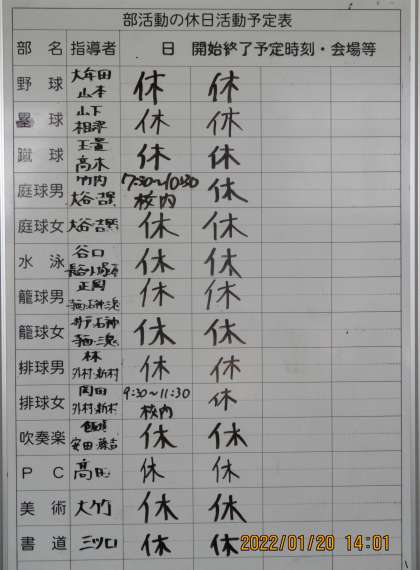 部活動の休日活動予定表
部 名 指導者 日 開始終了予定時刻・会場等
野 球 大牟田 山本 休 休
塁 球 山下 相澤 休 休
蹴 球 玉置 高木 休 休
庭球男 竹内 大谷・吉累 7:30~10:30 校内 休
庭球女 大谷・吉累 休 休
水 泳 谷口 休 休
籠球男 正岡 休 休
籠球女 井戸・石神 休 休
排球男 林 外村・新村 休 休
排球女 岡田 外村・新村 9:30~11:30 校内 休
吹奏楽 安田・藤吉 休 休
PC 高田 休 休
美 術 大竹 休 休
書 道 三ツ口 休 休
2022/01/20 14:01